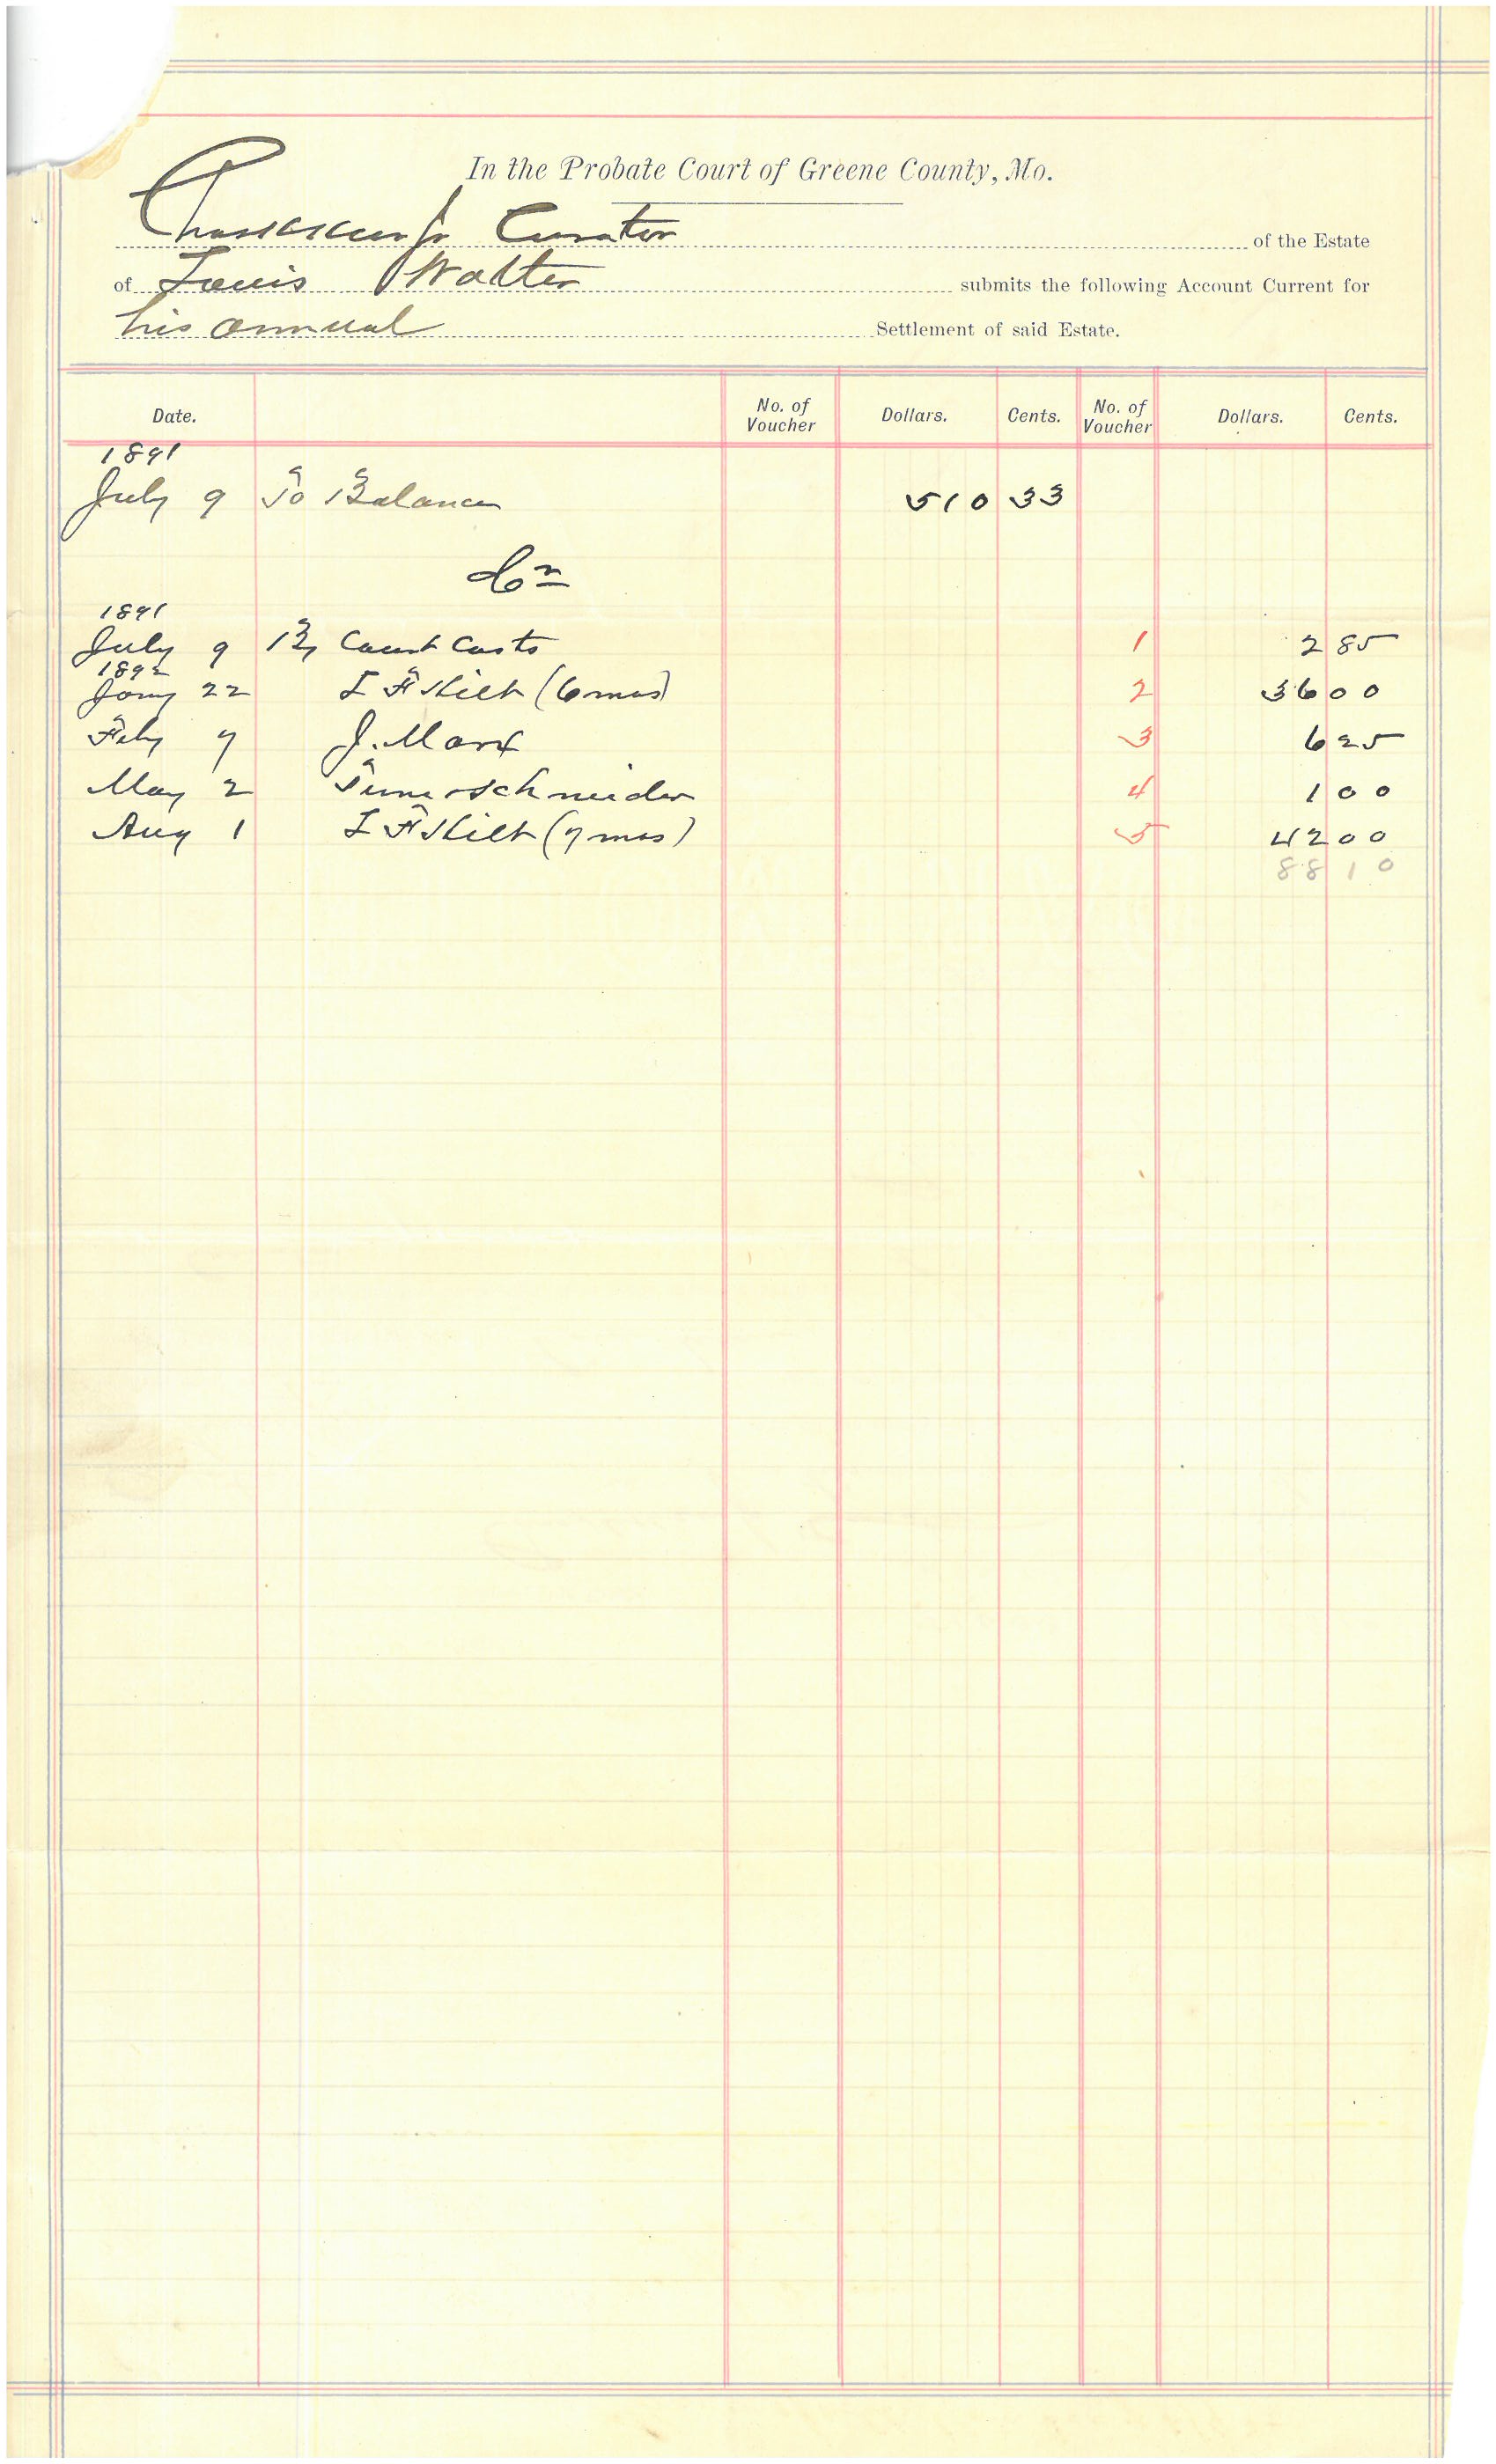 In the Probate Court of Greene County, Mo.
Curator of the Estate
of Louis Walter submits the following Account Current for
his annual Settlement of said Estate.
Date. No. of Voucher Dollars. Cents. No. of Voucher Dollars. Cents.
1891
July 9 To Balance 510 33
Cr
1891
July 9 By Court Costs 1 2 85
1892
Jany 22 (6 mos) 2 36 00
Feby 7 J. Marx 3 6 25
May 2 4 1 00
Aug 1 (7 mos) 5 42 00
88 10